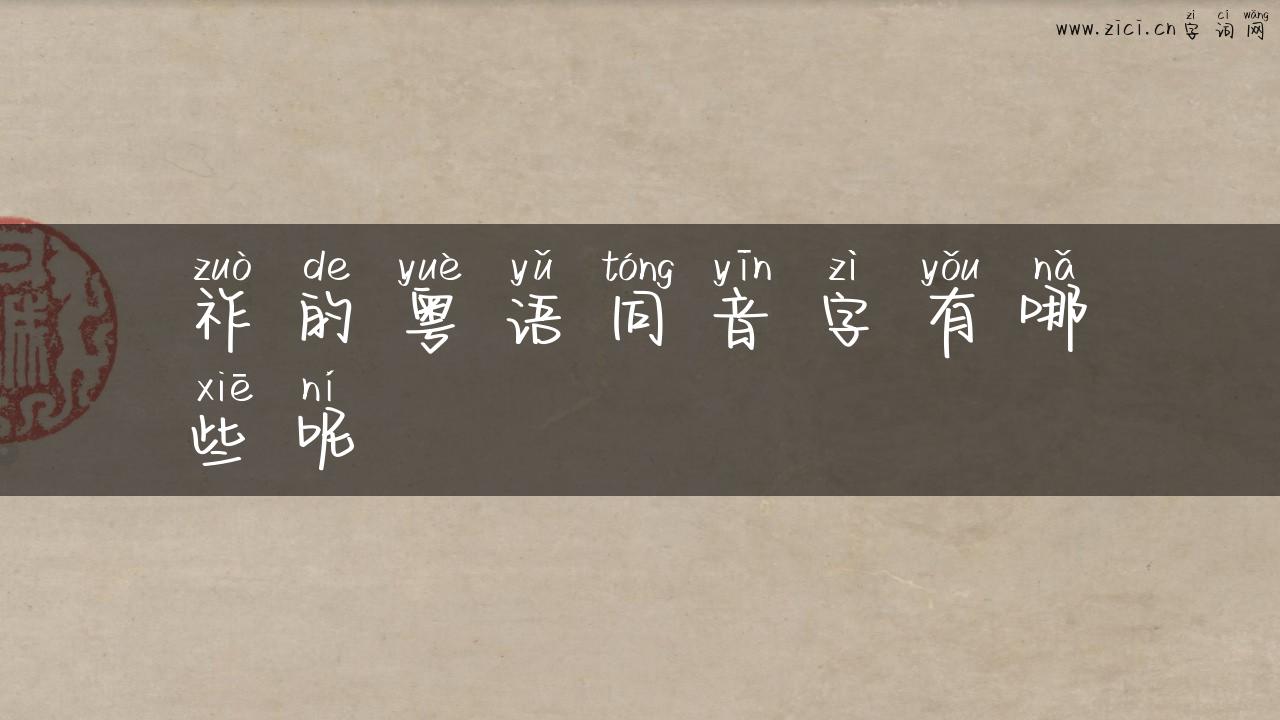 zì cí wǎng
www.zici.cn字词网
zuò de yuè yǔ tóng yīn zì yǒu nǎ
祚的粤语同音字有哪
xiē ní
些呢